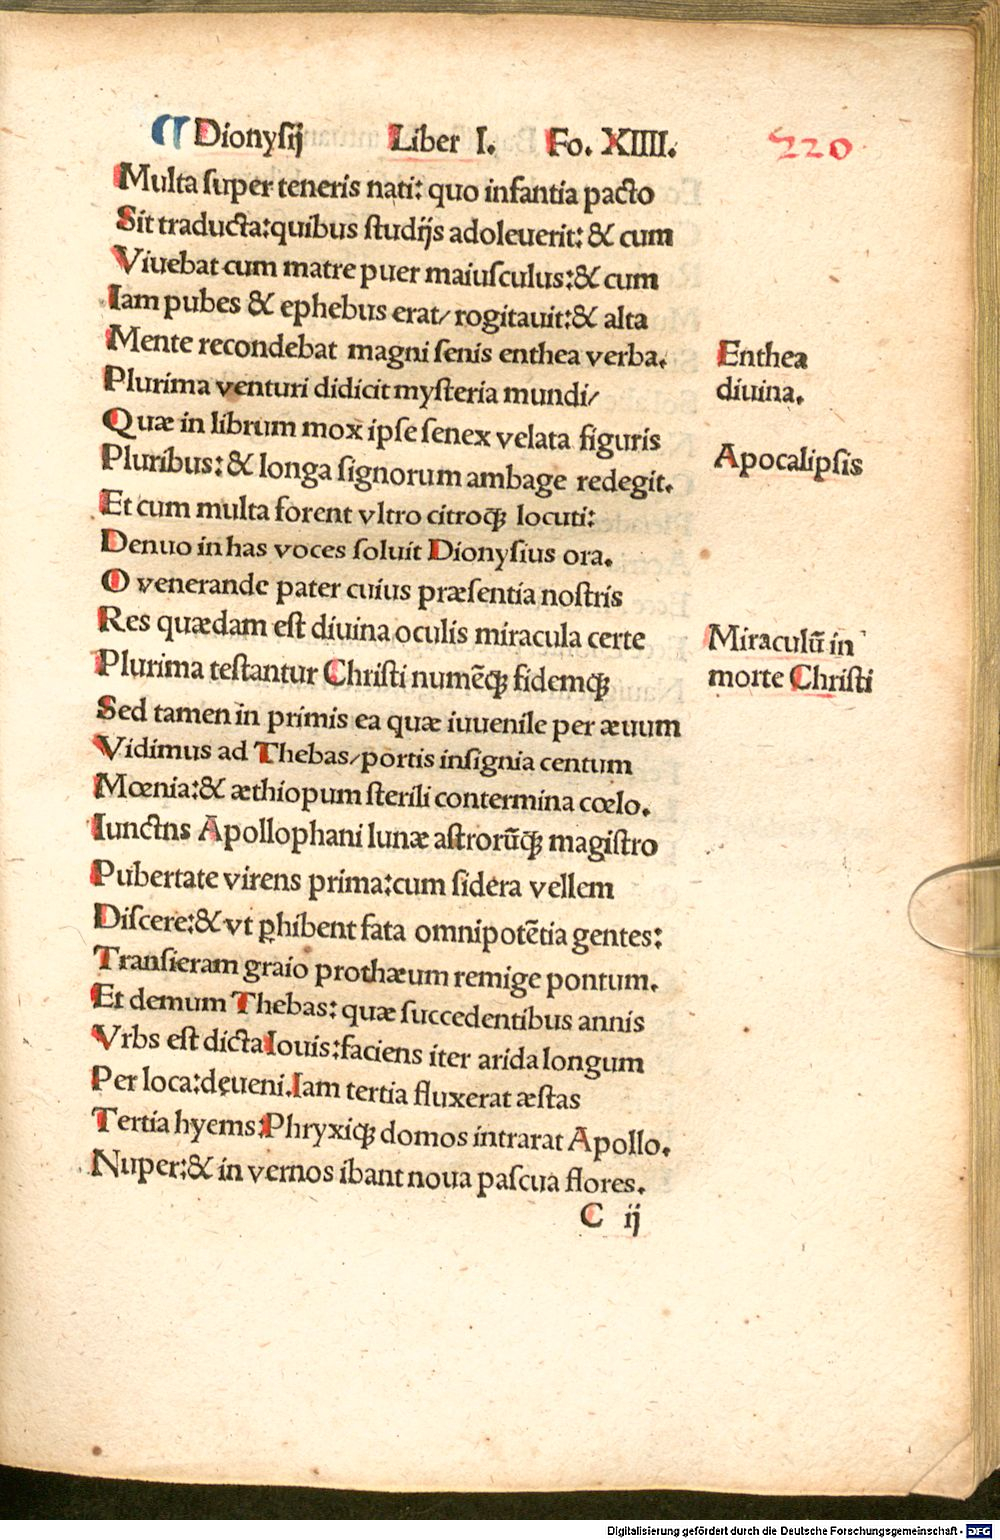 ¶ Dionyſij Liber I. Fo. XIIII. 220
Multa ſuper teneris nati: quo infantia pacto
Sit traducta:quibus ſtudijs adoleuerit: & cum
Viuebat cum matre puer maiuſculus:& cum
Iam pubes & ephebus erat/ rogitauit:& alta
Mente recondebat magni ſenis enthea verba.
Enthea
diuina.
Plurima venturi didicit myſteria mundi/
Quæ in librum mox ipſe ſenex velata figuris
Pluribus: & longa ſignorum ambage redegit.
Apocalipſis
Et cum multa forent vltro citroqꝫ locuti:
Denuo in has voces ſoluit Dionyſius ora.
O venerande pater cuius præſentia noſtris
Res quædam eſt diuina oculis miracula certe
Plurima teſtantur Chriſti numēqꝫ fidemqꝫ
Miraculū in
morte Chriſti
Sed tamen in primis ea quæ iuuenile per æuum
Vidimus ad Thebas/portis inſignia centum
Mœnia:& æthiopum ſterili contermina cœlo.
Iunctns Apollophani lunæ aſtrorūqꝫ magiſtro
Pubertate virens prima:cum ſidera vellem
Diſcere:& vt ꝑhibent fata omnipotētia gentes:
Tranſieram graio prothæum remige pontum.
Et demum Thebas: quæ ſuccedentibus annis
Vrbs eſt dicta Iouis:faciens iter arida longum
Per loca:dęueni.Iam tertia fluxerat æſtas
Tertia hyems:Phryxiqꝫ domos intrarat Apollo.
Nuper:& in vernos ibant noua paſcua flores.
C ij
Digitalisierung gefördert durch die Deutsche Forschungsgemeinschaft - DFG